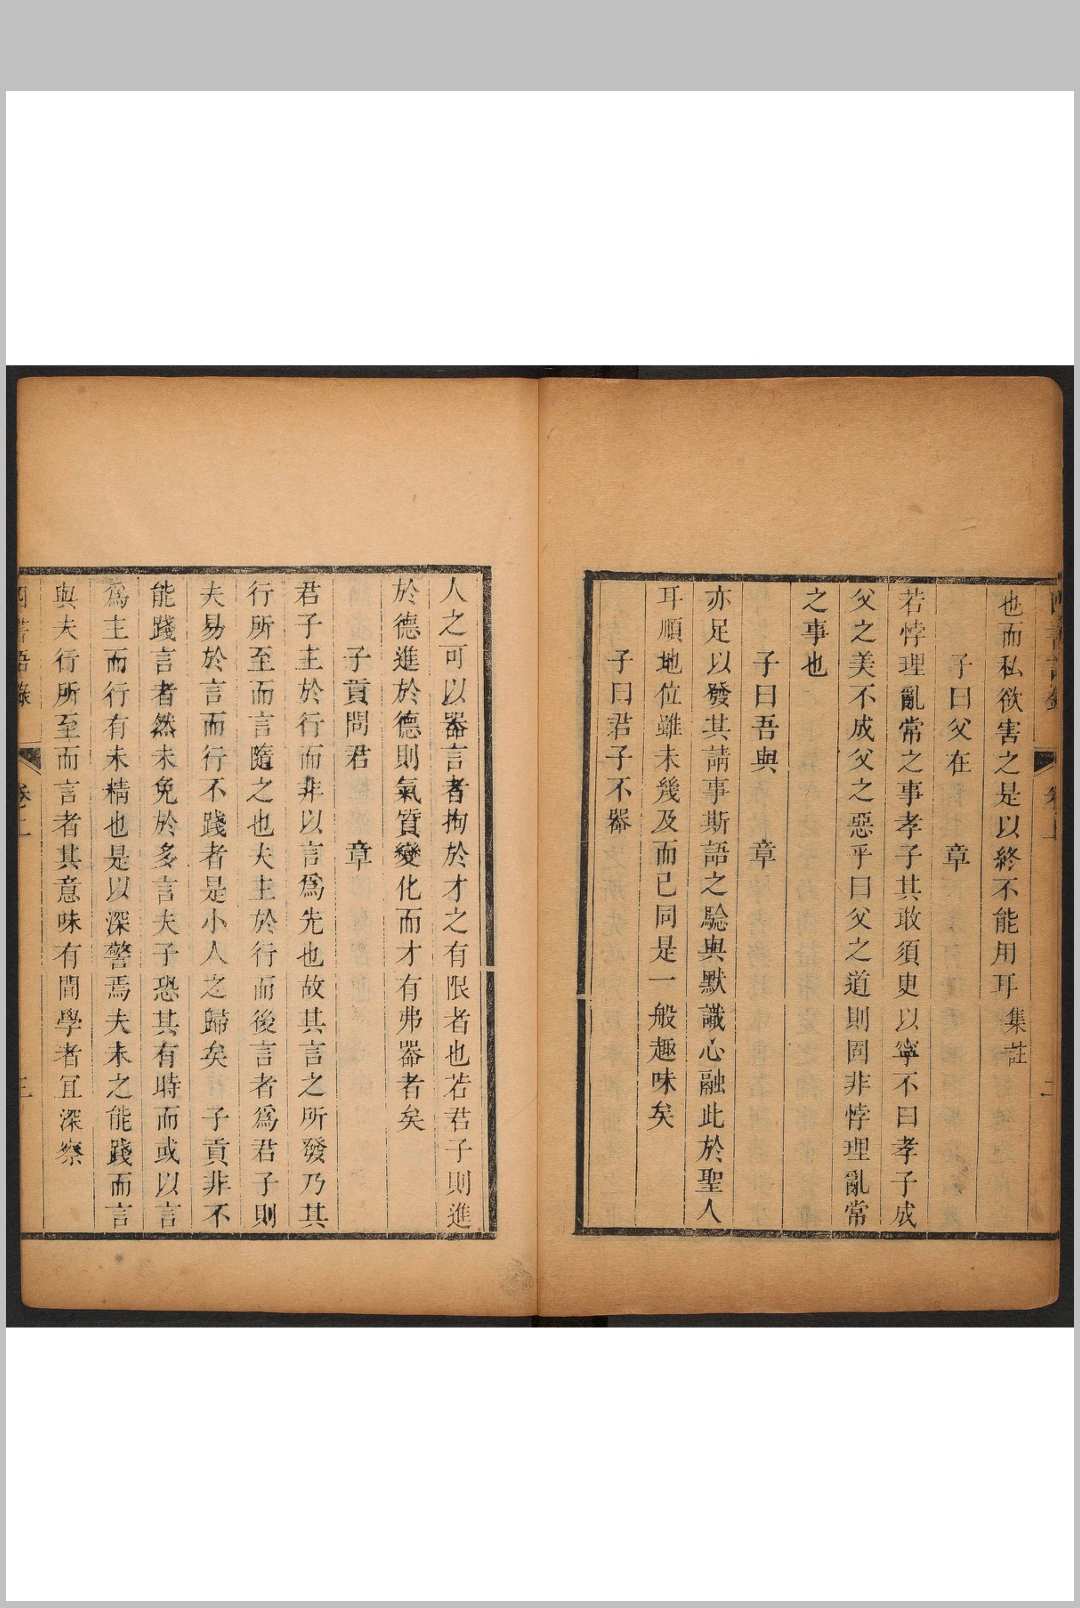 也而私欲害之是以終不能用耳集註
子曰父在　章
若悖理亂常之事孝子其敢須臾以寧不曰孝子成
父之美不成父之惡乎曰父之道則固非悖理亂常
之事也
子曰吾與　章
亦足以發其請事斯語之騐與默識心融此於聖人
耳順地位雖未幾及而已同是一般趣味矣
子曰君子不器
人之可以器言者拘於才之有限者也若君子則進
於德進於德則氣質變化而才有弗器者矣
子貢問君　章
君子主於行而非以言爲先也故其言之所發乃其
行所至而言隨之也夫主於行而後言者爲君子則
夫易於言而行不踐者是小人之歸矣　子貢非不
能踐言者然未免於多言夫子恐其有時而或以言
爲主而行有未精也是以深警焉夫未之能踐而言
與夫行所至而言者其意味有間學者宜深察